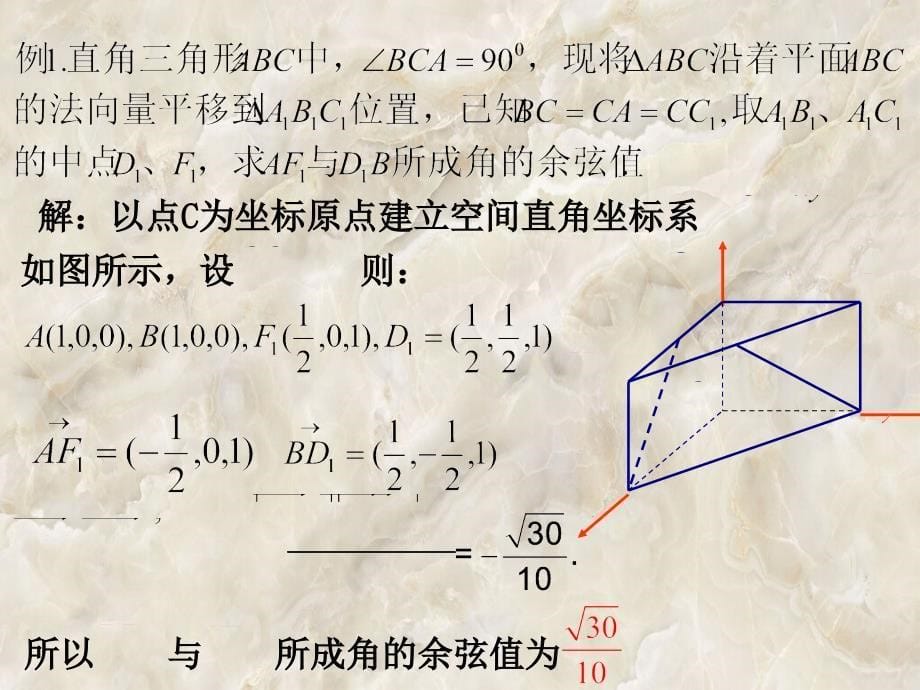 例1.直角三角形ABC中，∠BCA=90⁰，现将△ABC沿着平面ABC
的法向量平移到△A₁B₁C₁位置，已知BC=CA=CC₁,取A₁B₁、A₁C₁
的中点D₁、F₁，求AF₁与D₁B所成角的余弦值.
解：以点C为坐标原点建立空间直角坐标系
如图所示，设 则：
A(1,0,0),B(1,0,0),F₁(1/2,0,1),D₁=(1/2,1/2,1)
AF₁→=(-1/2,0,1) BD₁→=(1/2,-1/2,1)
=-√30/10.
所以 与 所成角的余弦值为√30/10